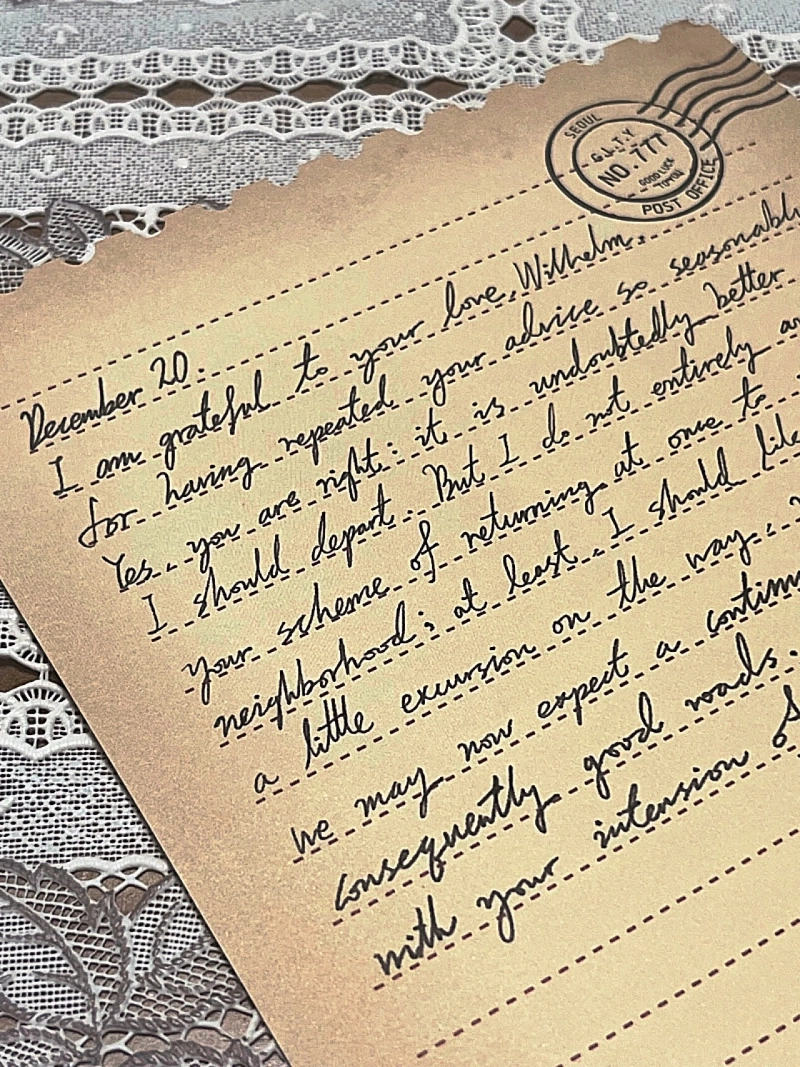 SEOUL
G.L.T.Y
NO.777
GOOD LUCK
TO YOU
POST OFFICE
December 20.
I am grateful to your love, Wilhelm,
for having repeated your advice so seasonabl
Yes, you are right: it is undoubtedly better
I should depart. But I do not entirely
your scheme of returning at once to
neighborhood; at least, I should like
a little excursion on the way,
we may now expect a continu
consequently good roads.
with your intension of